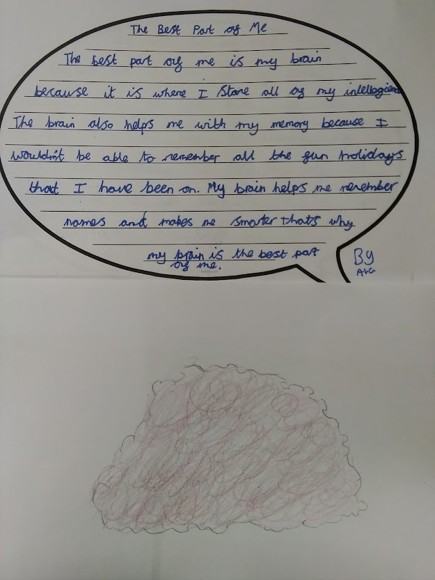 The Best Part of Me
The best part of me is my brain
because it is where I store all of my intellagience
The brain also helps me with my memory because I
wouldn't be able to remember all the fun holidays
that I have been on. My brain helps me remember
names and makes me smarter thats why
my brain is the best part
of me.
By